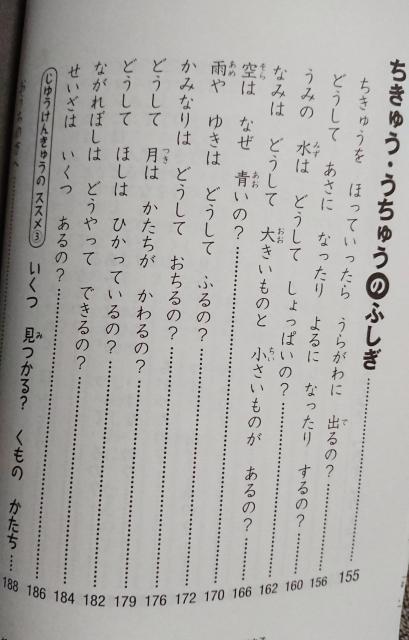 ちきゅう・うちゅうのふしぎ……155
ちきゅうを ほっていったら うらがわに 出るの?……156
どうして あさに なったり よるに なったり するの?……160
うみの 水は どうして しょっぱいの?……162
なみは どうして 大きいものと 小さいものが あるの?……166
空は なぜ 青いの?……170
雨や ゆきは どうして ふるの?……172
かみなりは どうして おちるの?……176
どうして 月は かたちが かわるの?……179
どうして ほしは ひかっているの?……182
ながれぼしは どうやって できるの?……184
せいざは いくつ あるの?……186
じゆうけんきゅうのススメ③ いくつ 見つかる? くもの かたち…188